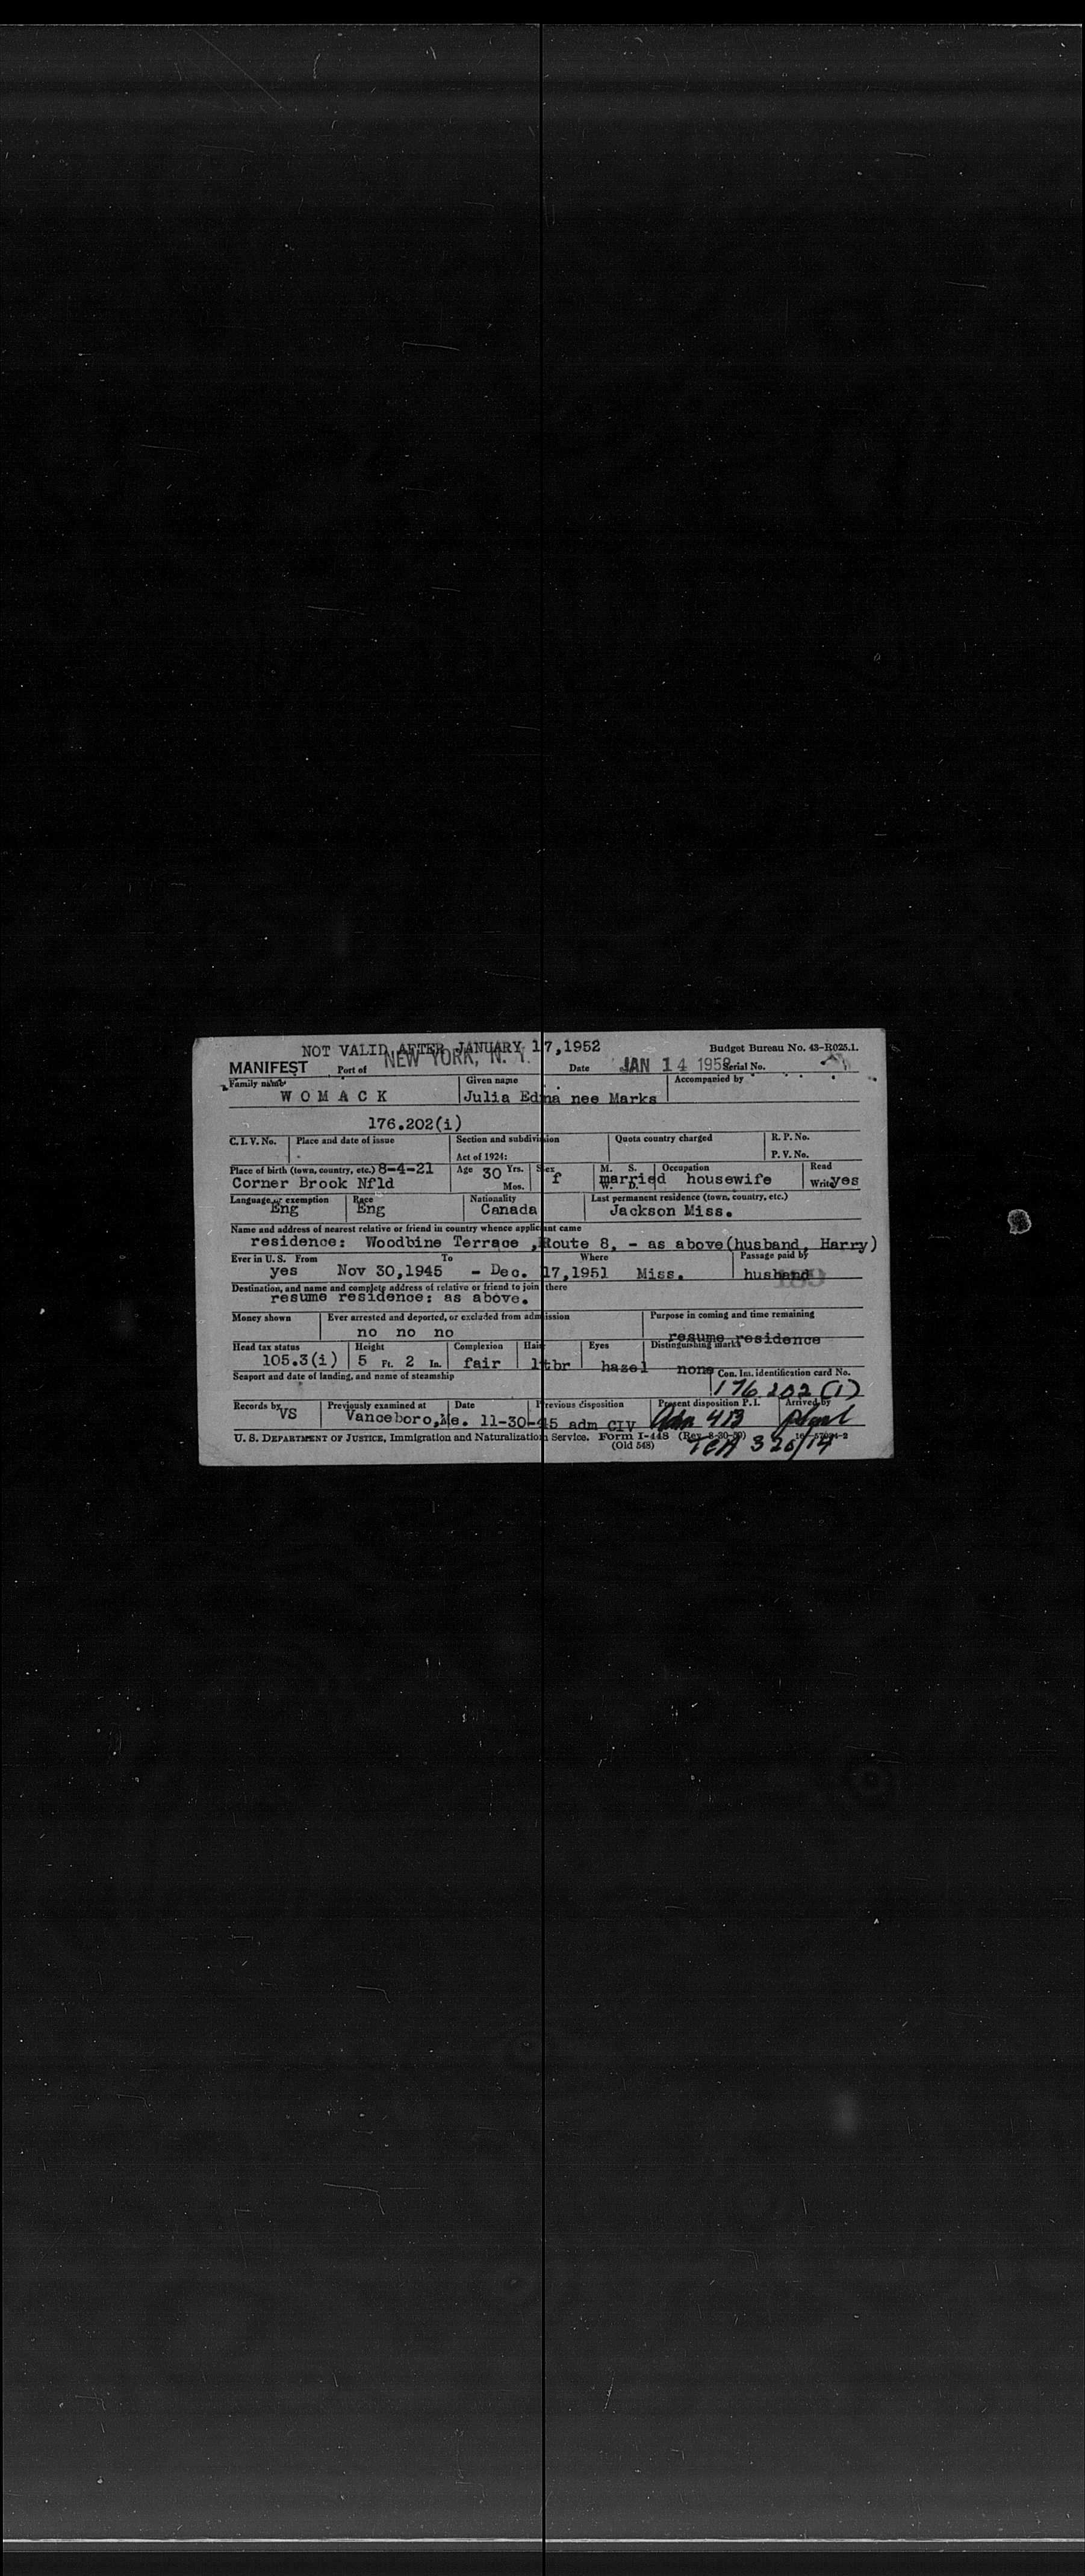 NOT VALID AFTER JANUARY 17,1952
Budget Bureau No. 43-R025.1.
MANIFEST Port of NEW YORK, N. Y. Date JAN 14 1952 Serial No.
Family name Given name Accompanied by
WOMACK Julia Edna nee Marks
176.202(i)
C.I.V. No. Place and date of issue Section and subdivision Quota country charged R. P. No.
Act of 1924: P. V. No.
Place of birth (town, country, etc.) 8-4-21 Age 30 Yrs. Mos. Sex f M. S. W. D. married Occupation housewife Read Write yes
Corner Brook Nfld
Language or exemption Race Nationality Last permanent residence (town, country, etc.)
Eng Eng Canada Jackson Miss.
Name and address of nearest relative or friend in country whence applicant came
residence: Woodbine Terrace ,Route 8, - as above(husband, Harry)
Ever in U. S. From To Where Passage paid by
yes Nov 30,1945 - Dec. 17,1951 Miss. husband
Destination, and name and complete address of relative or friend to join there
resume residence: as above.
Money shown Ever arrested and deported, or excluded from admission Purpose in coming and time remaining
no no no resume residence
Head tax status Height Complexion Hair Eyes Distinguishing marks
105.3(i) 5 Ft. 2 In. fair ltbr hazel none
Seaport and date of landing, and name of steamship Con. Im. identification card No.
176.202(1)
Records by Previously examined at Date Previous disposition Present disposition P. I. Arrived by
VS Vanceboro,Me. 11-30-45 adm CIV Adm 4B
U. S. DEPARTMENT OF JUSTICE, Immigration and Naturalization Service. Form I-448 (Rev. 8-30-50)
(Old 548) TCA 320/14